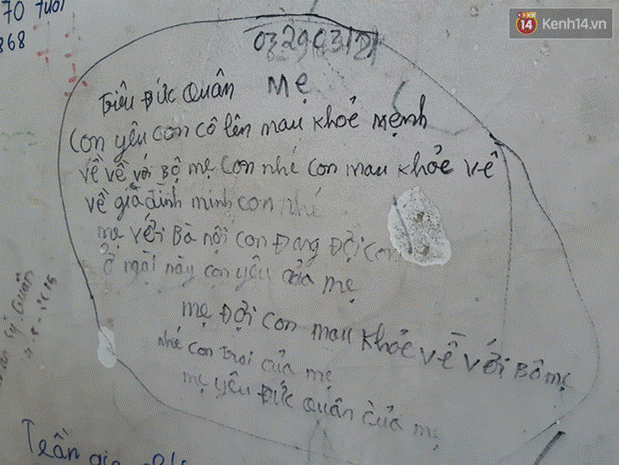 70 TUỔI
868
14 Kenh14.vn
Mẹ
Triệu Đức Quân
Con yêu con cô lên mau khoẻ mệnh
về về với Bộ mẹ con nhé con mau khoẻ về
về gia đình minh con nhé
mẹ với Bà nội con Đang Đợi con
ở ngoài này con yêu của mẹ
mẹ Đợi con mau khoẻ về với Bô mẹ
nhé con trai của mẹ
mẹ yêu Đức Quân của mẹ
Sỹ Quân
Trần gia